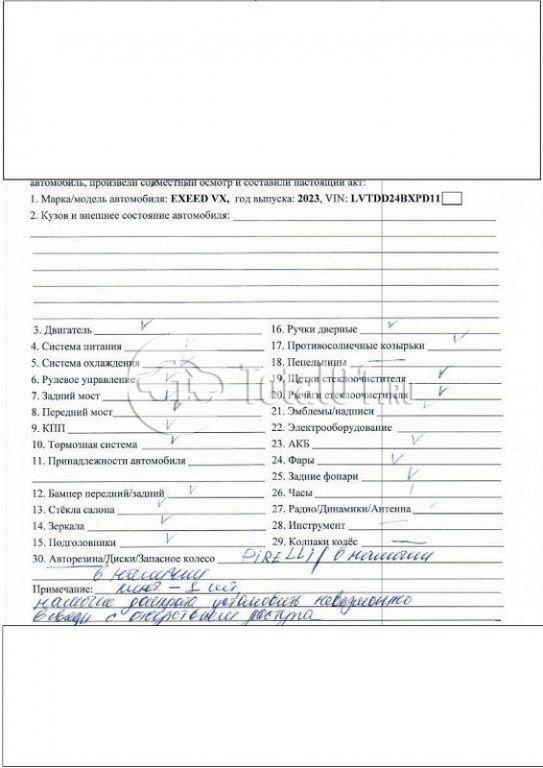 автомобиль, произвели совместный осмотр и составили настоящий акт:
1. Марка/модель автомобиля: EXEED VX, год выпуска: 2023, VIN: LVTDD24BXPD11
2. Кузов и внешнее состояние автомобиля:
3. Двигатель
4. Система питания
5. Система охлаждения
6. Рулевое управление
7. Задний мост
8. Передний мост
9. КПП
10. Тормозная система
11. Принадлежности автомобиля
12. Бампер передний/задний
13. Стёкла салона
14. Зеркала
15. Подголовники
16. Ручки дверные
17. Противосолнечные козырьки
18. Пепельницы
19. Щетки стеклоочистителя
20. Рычаги стеклоочистителя
21. Эмблемы/надписи
22. Электрооборудование
23. АКБ
24. Фары
25. Задние фонари
26. Часы
27. Радио/Динамики/Антенна
28. Инструмент
29. Колпаки колёс
30. Авторезина/Диски/Запасное колесо PIRELLI/ в наличии
в наличии
Примечание: ключ – 1 шт
наличие домкрата установить невозможно
в связи с отсутствием доступа
Total01.ru